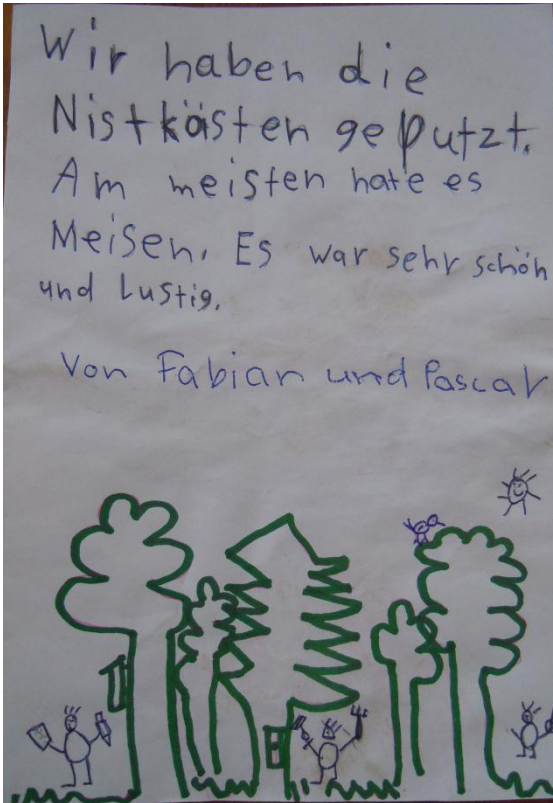 Wir haben die
Nistkästen geputzt.
Am meisten hate es
Meisen. Es war sehr schön
und Lustig.
Von Fabian und Pascal